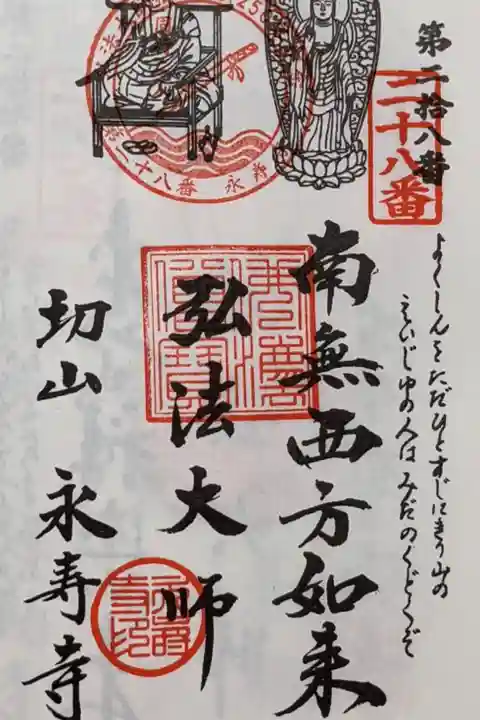 第二拾八番
二十八番
よくしんをただひとすじにきり山の
えいじゆの人はみだのくどくぞ
南無西方如来
弘法大師
切山 永寿寺
二十八番 永寿